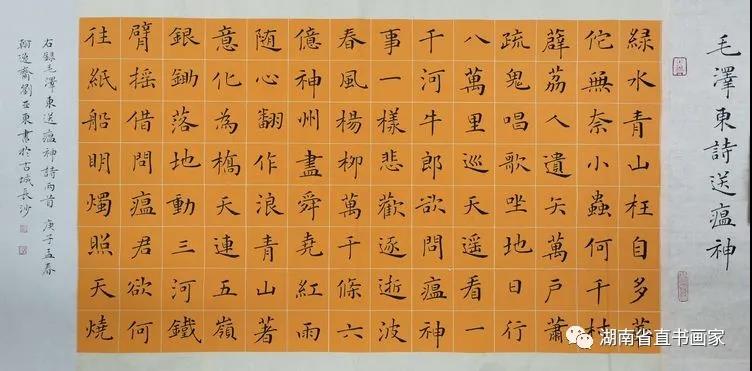 毛澤東詩送瘟神
綠水青山枉自多華
佗無奈小蟲何千村
薜荔人遺矢萬戶蕭
疏鬼唱歌坐地日行
八萬里巡天遥看一
千河牛郎欲問瘟神
事一樣悲歡逐逝波
春風楊柳萬千條六
億神州盡舜堯紅雨
随心翻作浪青山著
意化為橋天連五嶺
銀鋤落地動三河鐵
臂摇借問瘟君欲何
往紙船明燭照天燒
右錄毛澤東送瘟神詩兩首 庚子孟春
翰逸齋劉亞東書於古城長沙
湖南省直书画家